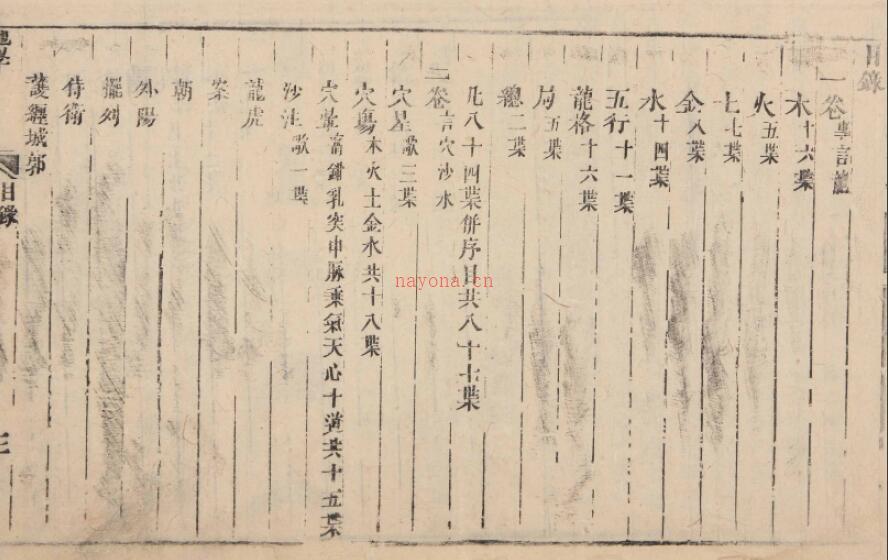 目錄
一卷專言龍
木十六葉
火五葉
土七葉
金八葉
水十四葉
五行十一葉
龍格十六葉
局五葉
總二葉
凡八十四葉併序目共八十七葉
二卷言穴沙水
穴星歌三葉
穴塲木火土金水共十八葉
穴暈窩鏽乳突串脉乘氣天心十道共十五葉
沙法歌一葉
龍虎
案
朝
外陽
擺列
侍衛
護纏城郭
目錄
三
nayona.cn